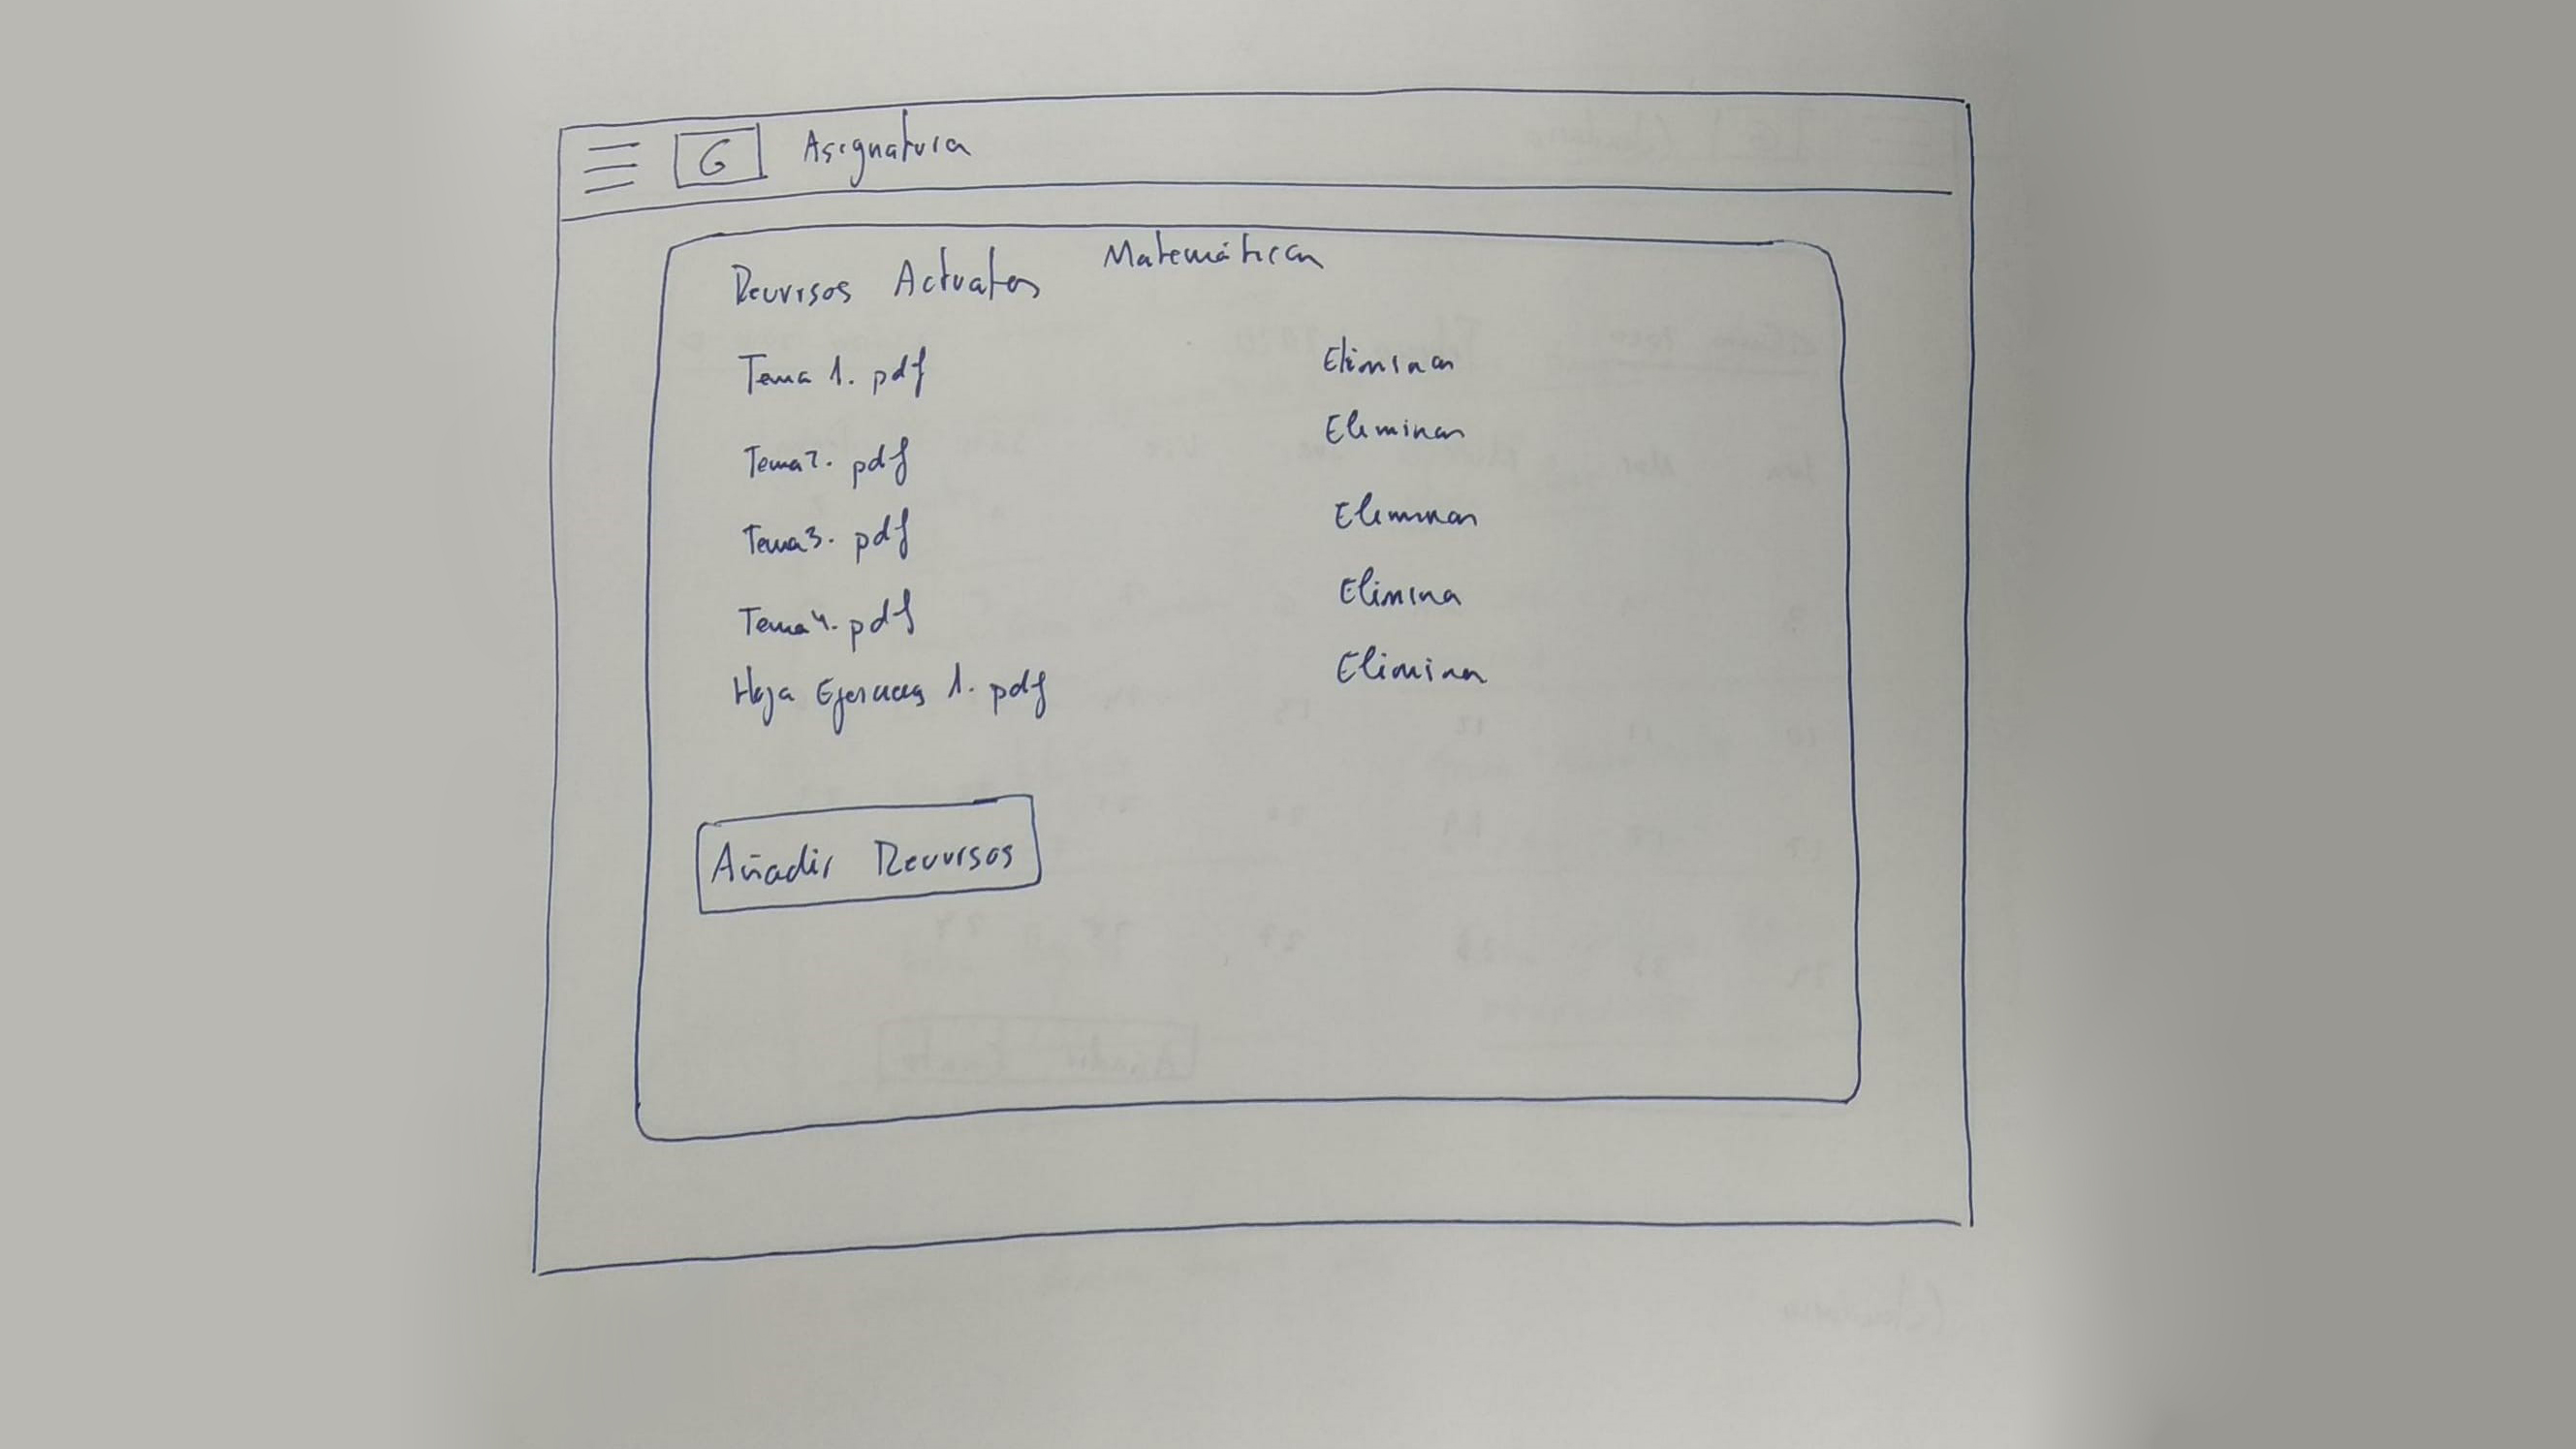 G Asignatura
Matemáticas
Recursos Actuales
Tema 1. pdf Eliminar
Tema2. pdf Eliminar
Tema3. pdf Eliminar
Tema4. pdf Elimina
Hoja Ejercicios 1. pdf Eliminar
Añadir Recursos